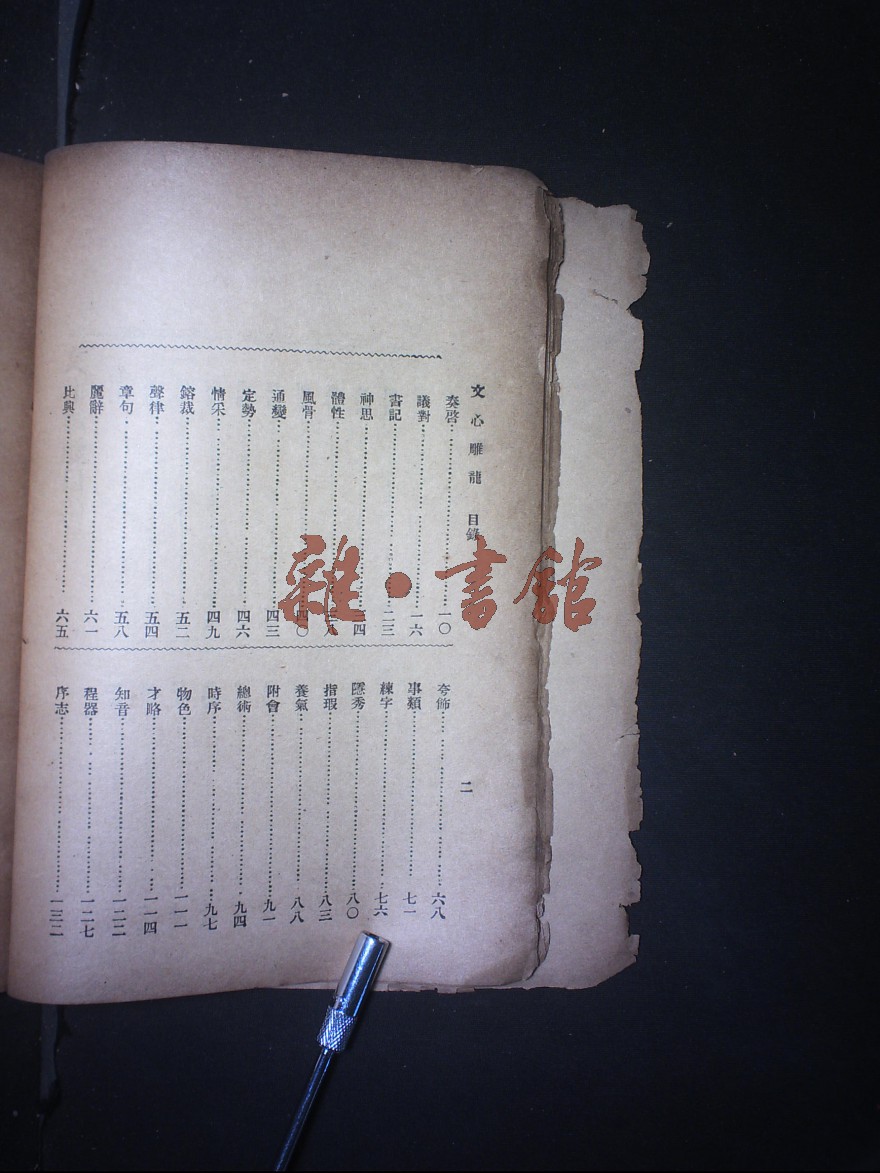 文心雕龍 目錄
奏啓 一〇
議對 一六
書記 二三
神思 三四
體性 三八
風骨 四〇
通變 四三
定勢 四六
情采 四九
鎔裁 五二
聲律 五四
章句 五八
麗辭 六一
比興 六五
二
夸飾 六八
事類 七一
練字 七六
隱秀 八〇
指瑕 八三
養氣 八八
附會 九一
總術 九四
時序 九七
物色 一一一
才略 一一四
知音 一二二
程器 一二七
序志 一三二
雜·書館